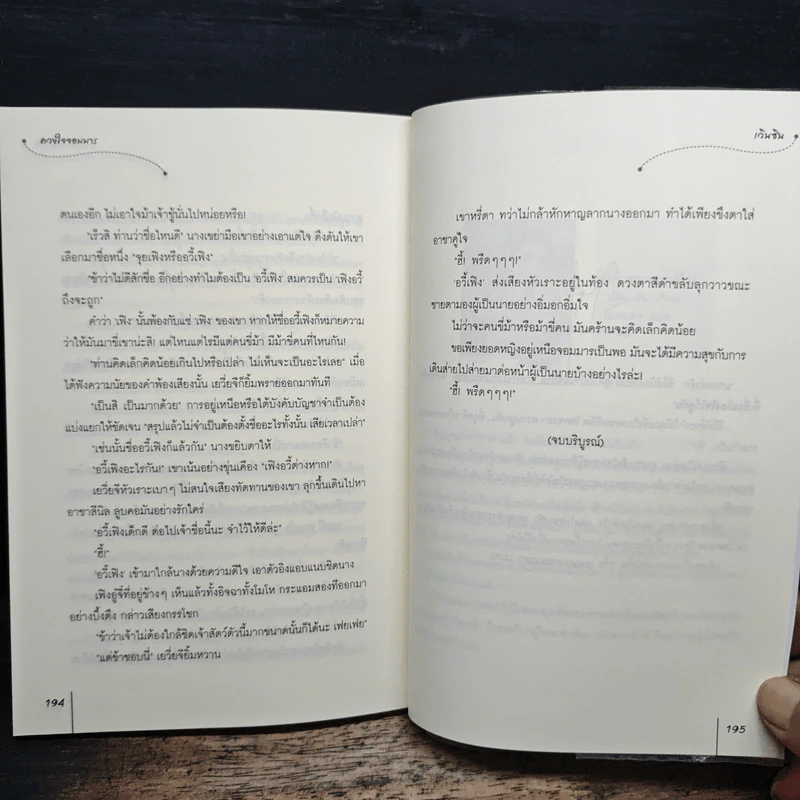 ดวงใจจอมมาร
ตนเองอีก ไม่เอาใจม้าเจ้าชู้นั่นไปหน่อยหรือ!
"เร็วสิ ท่านว่าชื่อไหนดี" นางเขย่ามือเขาอย่างเอาแต่ใจ ดึงดันให้เขา
เลือกมาชื่อหนึ่ง "จุยเฟิงหรืออวี้เฟิง"
"ข้าว่าไม่ดีสักชื่อ อีกอย่างทำไมต้องเป็น 'อวี้เฟิง' สมควรเป็น 'เฟิงอวี้'
ถึงจะถูก"
คำว่า 'เฟิง' นั้นพ้องกับแซ่ 'เฟิง' ของเขา หากให้ชื่ออวี้เฟิงก็หมายความ
ว่าให้มันมาขี่เขาน่ะสิ! แต่ไหนแต่ไรมีแต่คนขี่ม้า มีม้าขี่คนที่ไหนกัน!
"ท่านคิดเล็กคิดน้อยเกินไปหรือเปล่า ไม่เห็นจะเป็นอะไรเลย" เมื่อ
ได้ฟังความนัยของคำพ้องเสียงนั้น เยวี่ยจีก็ยิ้มพรายออกมาทันที
"เป็นสิ เป็นมากด้วย" การอยู่เหนือหรือใต้บังคับบัญชาจำเป็นต้อง
แบ่งแยกให้ชัดเจน "สรุปแล้วไม่จำเป็นต้องตั้งชื่ออะไรทั้งนั้น เสียเวลาเปล่า"
"เช่นนั้นชื่ออวี้เฟิงก็แล้วกัน" นางขยิบตาให้
"อวี้เฟิงอะไรกัน!" เขาเน้นอย่างขุ่นเคือง "เฟิงอวี้ต่างหาก!"
เยวี่ยจีหัวเราะเบาๆ ไม่สนใจเสียงทัดทานของเขา ลุกขึ้นเดินไปหา
อาชาสีนิล ลูบคอมันอย่างรักใคร่
"อวี้เฟิงเด็กดี ต่อไปเจ้าชื่อนี้นะ จำไว้ให้ดีล่ะ"
"ฮี้!"
'อวี้เฟิง' เข้ามาใกล้นางด้วยความดีใจ เอาตัวอิงแอบแนบชิดนาง
เฟิงอู๋จี๋ที่อยู่ข้างๆ เห็นแล้วทั้งอิจฉาทั้งโมโห กระแอมสองทีออกมา
อย่างบึ้งตึง กล่าวเสียงกรรโชก
"ข้าว่าเจ้าไม่ต้องใกล้ชิดเจ้าสัตว์ตัวนี้มากขนาดนั้นก็ได้นะ เฟยเฟย"
"แต่ข้าชอบนี่" เยวี่ยจียิ้มหวาน
194
เวินซิน
เขาหรี่ตา ทว่าไม่กล้าหักหาญลากนางออกมา ทำได้เพียงขึงตาใส่
อาชาคู่ใจ
"ฮี้! พรืดๆๆๆ!"
'อวี้เฟิง' ส่งเสียงหัวเราะอยู่ในท้อง ดวงตาสีดำขลับลุกวาวขณะ
ชายตามองผู้เป็นนายอย่างอิ่มอกอิ่มใจ
ไม่ว่าจะคนขี่ม้าหรือม้าขี่คน มันคร้านจะคิดเล็กคิดน้อย
ขอเพียงยอดหญิงอยู่เหนือจอมมารเป็นพอ มันจะได้มีความสุขกับการ
เดินส่ายไปส่ายมาต่อหน้าผู้เป็นนายบ้างอย่างไรล่ะ!
"ฮี้! พรืดๆๆๆ!"
(จบบริบูรณ์)
195